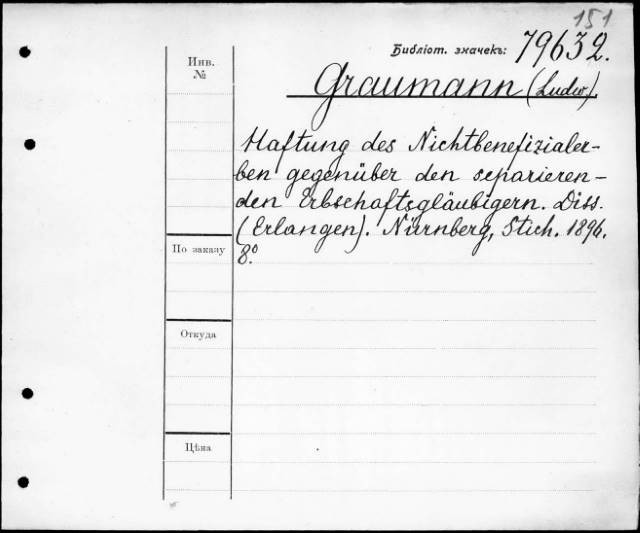 151
Библіот. значекъ: 79632.
Инв.
№
Graumann (Ludw.)
Haftung des Nichtbenefizialer-
ben gegenüber den separieren-
den Erbschaftsgläubigern. Diss.
(Erlangen). Nürnberg, Stich. 1896.
8.º
По заказу
Откуда
Цѣна